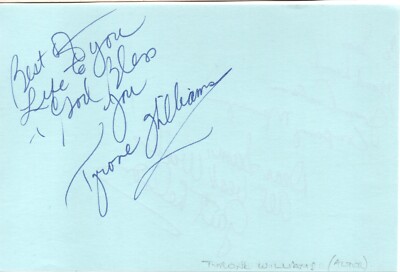 Best of
Life to you
& God Bless
You
Tyrone Williams
TYRONE WILLIAMS